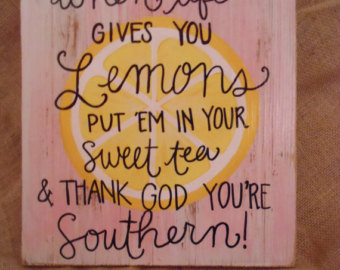 When life
GIVES YOU
Lemons
PUT 'EM IN YOUR
Sweet tea
& THANK GOD YOU'RE
Southern!